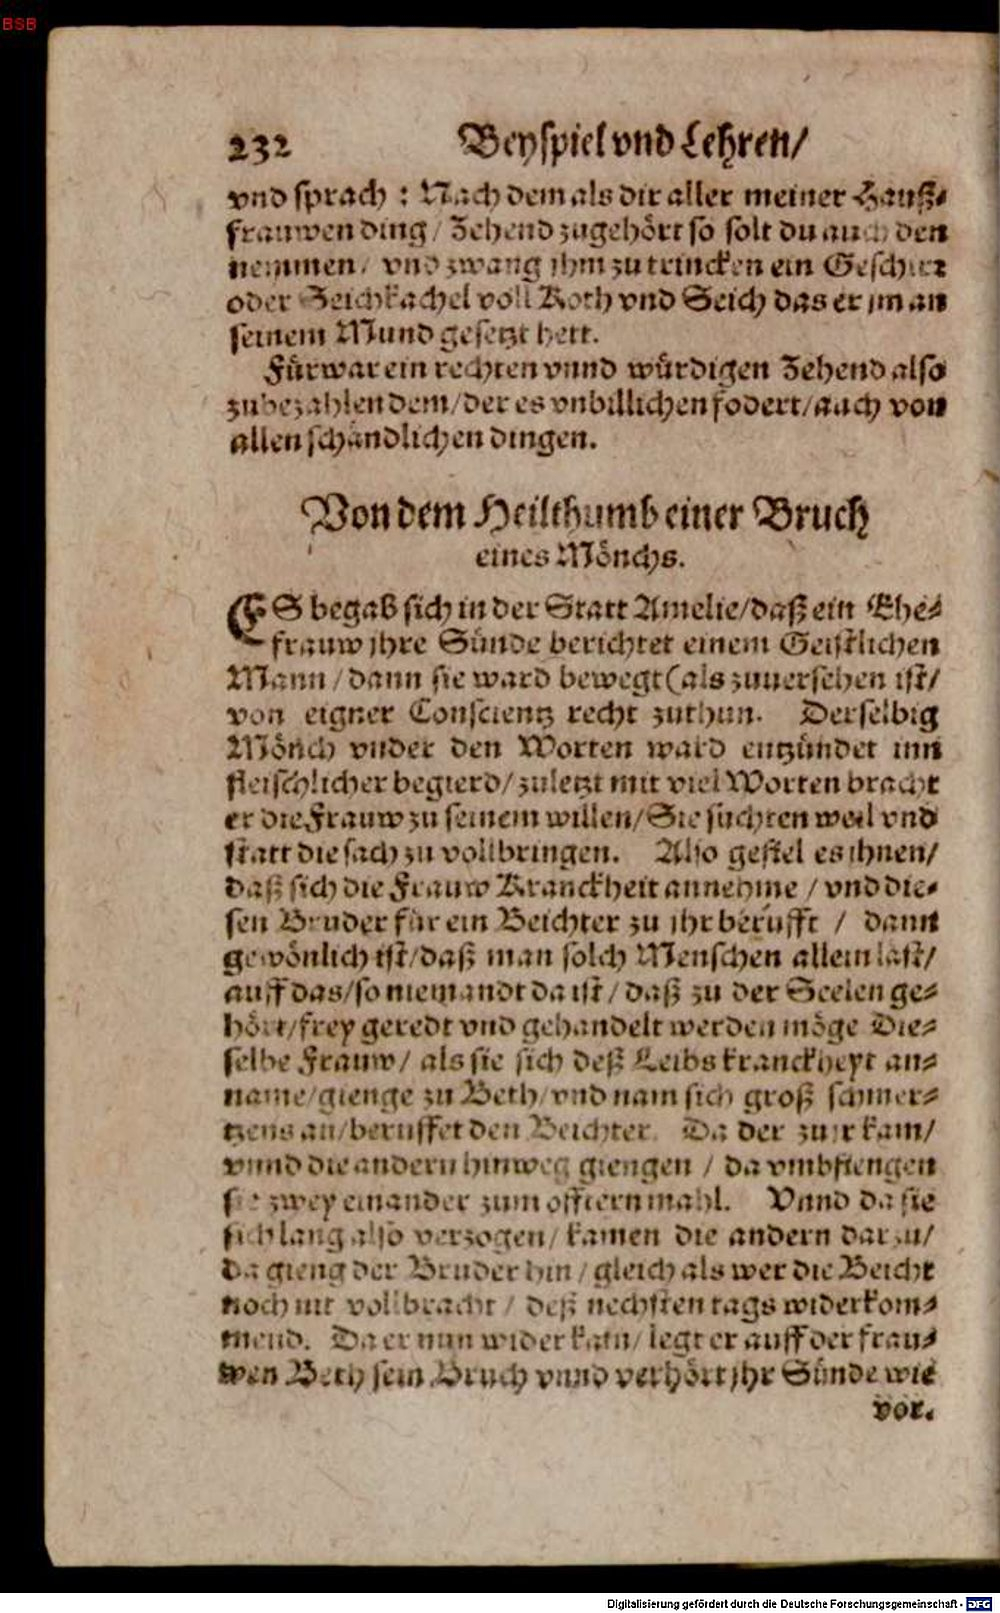 BSB
232 Beyspiel vnd Lehren/
vnd sprach : Nach dem als dir aller meiner Hauß-
frauwen ding / Zehend zugehört so solt du auch den
nemmen / vnd zwang jhm zu trincken ein Geschirr
oder Seichkachel voll Koth vnd Seich das er jm an
seinem Mund gesetzt hett.
Fürwar ein rechten vnnd würdigen Zehend also
zubezahlen dem/der es vnbillichen fodert/auch von
allen schändlichen dingen.
Von dem Heilthumb einer Bruch
eines Mönchs.
ES begab sich in der Statt Amelie/daß ein Ehe-
frauw jhre Sünde berichtet einem Geistlichen
Mann / dann sie ward bewegt (als zuuersehen ist/
von eigner Conscientz recht zuthun. Derselbig
Mönch vnder den Worten ward entzündet mit
fleischlicher begierd/zuletzt mit viel Worten bracht
er die Frauw zu seinem willen/Sie suchten weil vnd
statt die sach zu vollbringen. Also gefiel es ihnen/
daß sich die Frauw Kranckheit annehme / vnd die-
sen Bruder für ein Beichter zu ihr berüfft / dann
gewönlich ist/daß man solch Menschen allein last/
auff das/so niemandt da ist / daß zu der Seelen ge-
hört/frey geredt vnd gehandelt werden möge Die-
selbe Frauw/ als sie sich deß Leibs kranckheyt an-
name/gienge zu Beth/vnd nam sich groß schmer-
tzens an/beruffet den Beichter. Da der zu jr kam/
vnnd die andern hinweg giengen / da vmbfiengen
sie zwey einander zum offtern mahl. Vnnd da sie
sich lang also verzogen/ kamen die andern darzu/
da gieng der Bruder hin / gleich als wer die Beicht
noch nit vollbracht / deß nechsten tags widerkom-
mend. Da er nun wider kam/ legt er auff der frau-
wen Beth sein Bruch vnnd verhört jhr Sünde wie
vor.
Digitalisierung gefördert durch die Deutsche Forschungsgemeinschaft - DFG